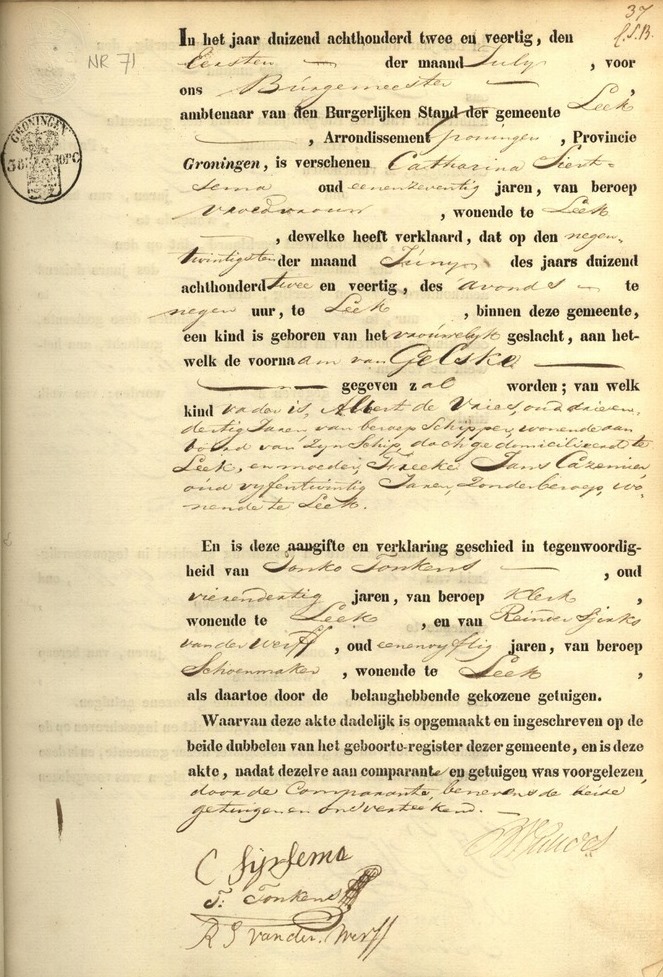 37
NR 71
GRONINGEN
In het jaar duizend achthonderd twee en veertig, den
Eersten der maand July, voor
ons Burgemeester,
ambtenaar van den Burgerlijken Stand der gemeente Leek
, Arrondissement Groningen, Provincie
Groningen, is verschenen Catharina Siert-
sema oud eenenzeventig jaren, van beroep
vroedvrouw, wonende te Leek
, dewelke heeft verklaard, dat op den negen-
twintigsten der maand Juny des jaars duizend
achthonderd twee en veertig, des avonds te
negen uur, te Leek, binnen deze gemeente,
een kind is geboren van het vrouwelyk geslacht, aan het-
welk de voornaam van Geeske
gegeven zal worden; van welk
kind vader is, Albert de Vries, oud drieen-
dertig Jaren, van beroep Schipper, wonende aan
boord van zyn Schip, doch gedomicilieerd te
Leek, en moeder, Freeke Jans Cazemier
oud vyfentwintig Jaren, Zonder beroep, wo-
nende te Leek.
En is deze aangifte en verklaring geschied in tegenwoordig-
heid van Tonko Tonkens, oud
vierendertig jaren, van beroep Klerk,
wonende te Leek, en van Reinder Sjerks
van der Werff, oud eenenvyftig jaren, van beroep
Schoenmaker, wonende te Leek,
als daartoe door de belanghebbende gekozene getuigen.
Waarvan deze akte dadelijk is opgemaakt en ingeschreven op de
beide dubbelen van het geboorte-register dezer gemeente, en is deze
akte, nadat dezelve aan comparante en getuigen was voorgelezen,
door de Comparante, benevens de beide
getuigen en ons verteekend.
C Sijrsema
T. Tonkens
R S van der Werff